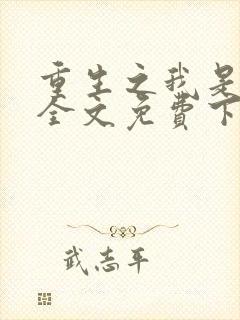 重生之我是
全文免费下
武志平